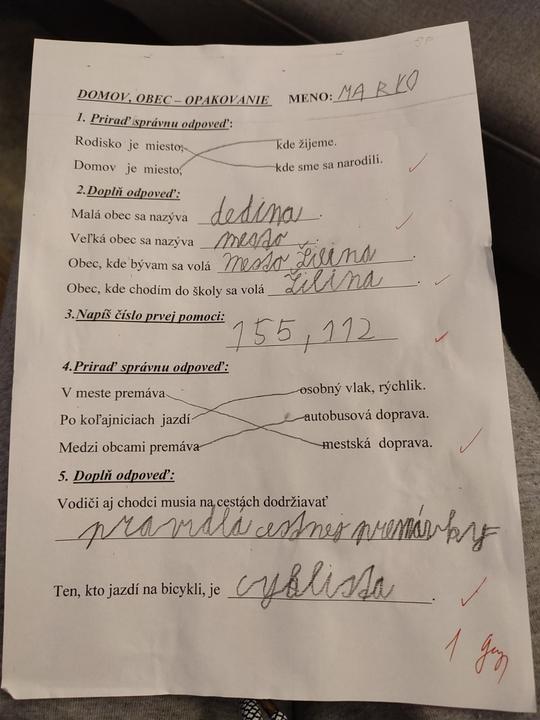 DOMOV, OBEC – OPAKOVANIE MENO: MARKO
1. Priraď správnu odpoveď:
Rodisko je miesto, kde žijeme.
Domov je miesto, kde sme sa narodili.
2. Doplň odpoveď:
Malá obec sa nazýva dedina.
Veľká obec sa nazýva mesto.
Obec, kde bývam sa volá mesto Žilina.
Obec, kde chodím do školy sa volá Žilina.
3. Napíš číslo prvej pomoci:
155, 112
4. Priraď správnu odpoveď:
V meste premáva osobný vlak, rýchlik.
Po koľajniciach jazdí autobusová doprava.
Medzi obcami premáva mestská doprava.
5. Doplň odpoveď:
Vodiči aj chodci musia na cestách dodržiavať
pravidlá cestnej premávky
Ten, kto jazdí na bicykli, je cyklista.
1